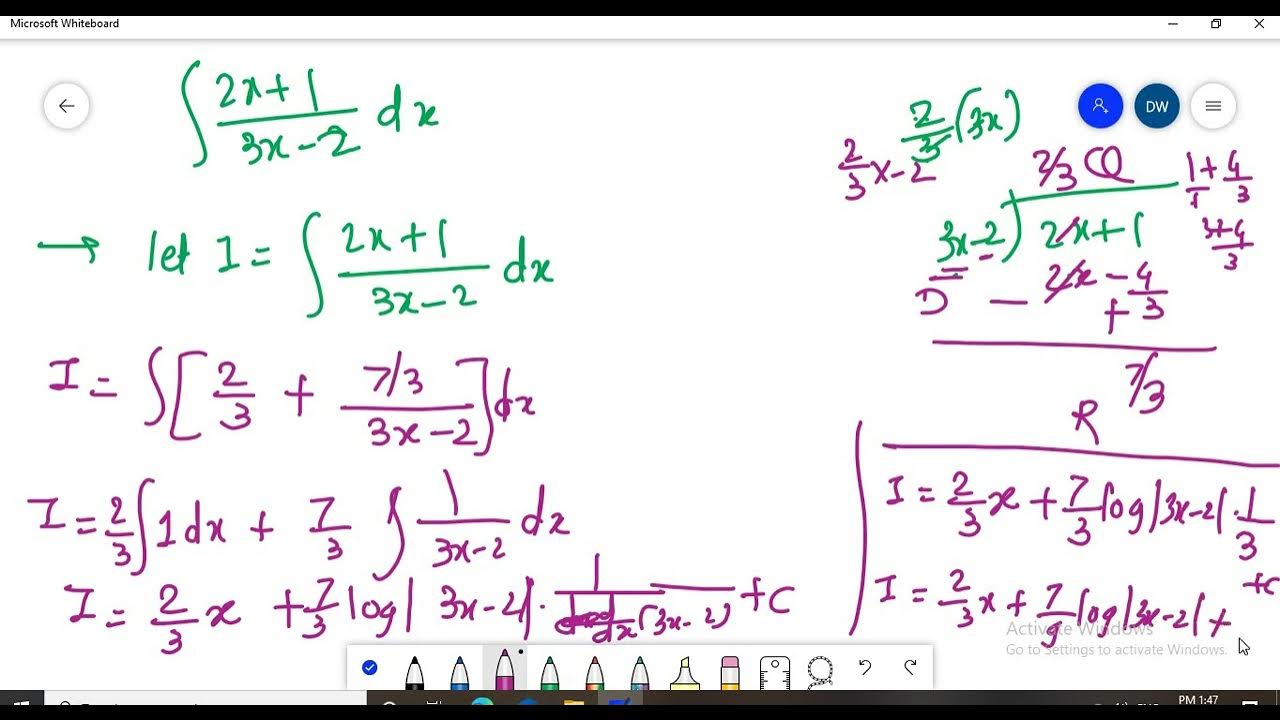 Microsoft Whiteboard
DW
∫ (2x+1)/(3x-2) dx
→ let I = ∫ (2x+1)/(3x-2) dx
I = ∫ [2/3 + (7/3)/(3x-2)] dx
I = 2/3 ∫ 1 dx + 7/3 ∫ 1/(3x-2) dx
I = 2/3 x + 7/3 log|3x-2| · 1/(d/dx (3x-2)) + C
2/3 (3x)
2/3 x-2
2/3 Q
3x-2) 2x+1
D - 2x - 4/3
+
7/3
R
1/1 + 4/3
3+4/3
I = 2/3 x + 7/3 log|3x-2| · 1/3
+C
I = 2/3 x + 7/9 log|3x-2| +
Activate Windows
Go to Settings to activate Windows.
PM 1:47